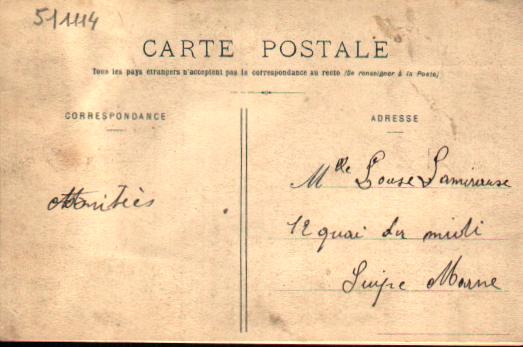 51114
CARTE POSTALE
Tous les pays étrangers n'acceptent pas la correspondance au recto (Se renseigner à la Poste)
CORRESPONDANCE
ADRESSE
Amitiès
Mlle Louse Lamireuse
12 quai du midi
Suipe Marne